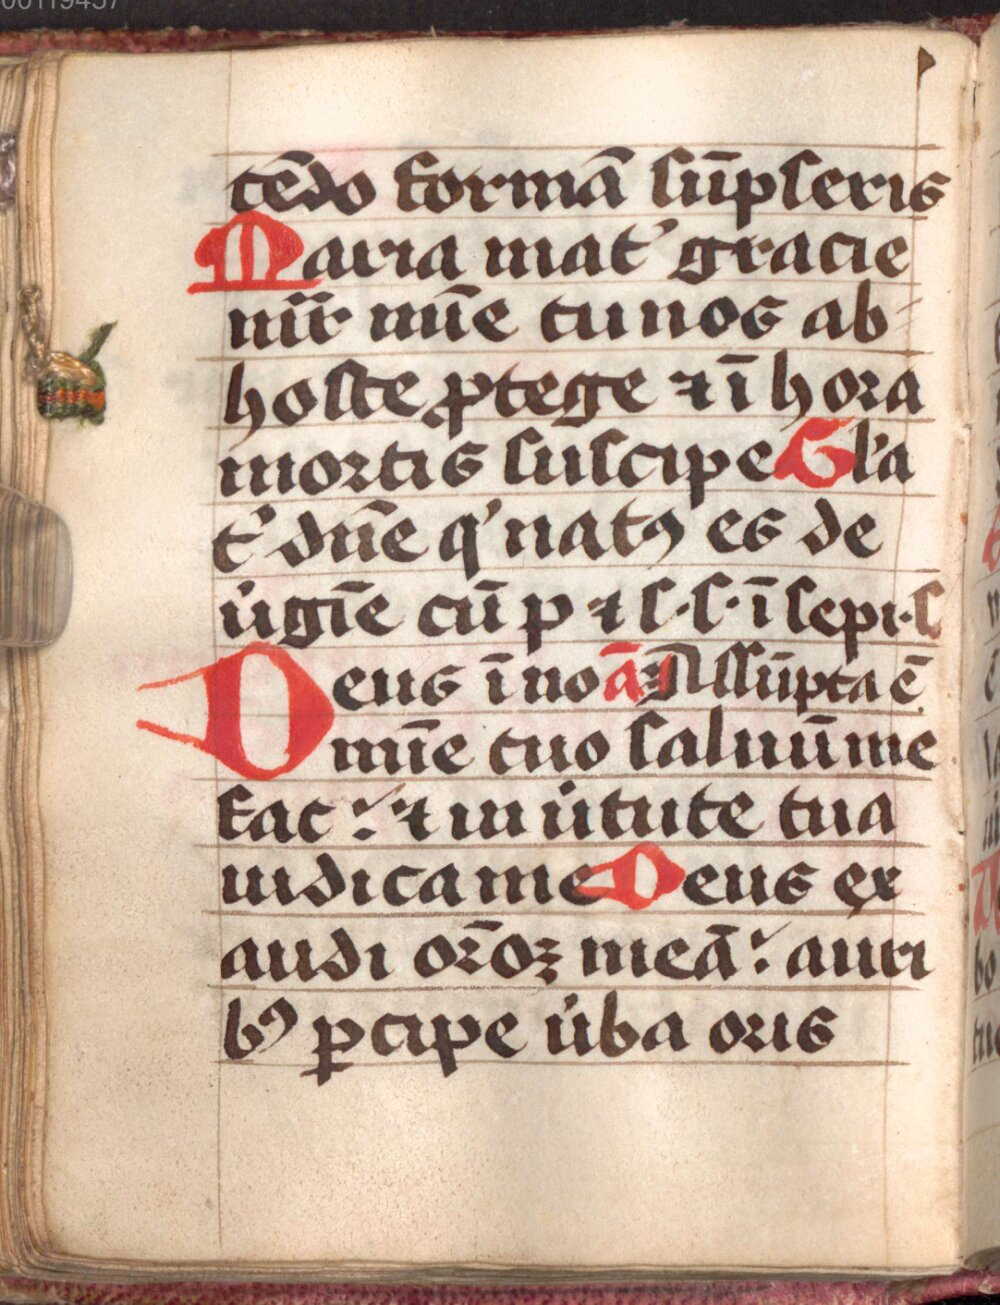 00119437
tēdo formā sūpseris
Maria mat̉ gracie
mīr mīe tu nos ab
hoste ꝓtege ⁊ ī hora
mortis suscipe Gl̉a
t̉ dn̄e q̉ natꝰ es de
ủgīe cū p ⁊ s·s· ī sepi·s
Deus ī no ā Assūpta ē
mīe tuo saluū me
fac ⁊ in ủtute tua
iudica me Deus ex
audi or̄oꝫ meā auri
bꝰ ꝑcipe ủba oris